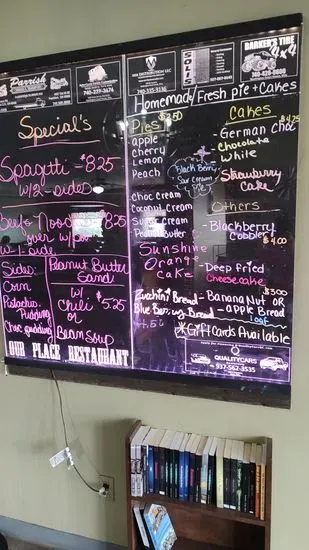 Parrish
740-335-3136
SOLIS
BARKER'S TIRE
4x4
740-426-8888
Homemade/Fresh pie + cakes
Special's
Spagetti - $8.25
w/2-sides
Beef & Nood
8.25
over w/
w 1-side
Sides:
Corn
Pistachio
Pudding
Choc pudding
Peanut Butter
Sandi
w/
Chili $5.25
or
Bean Soup
OUR PLACE RESTAURANT
Pies $3.50
apple
cherry
Lemon
Peach
Black Berry
Sour Cream
(Pie)
Choc Cream
Coconut Cream
Sugar Cream
Peanut Butter
Sunshine
Orange
Cake
Cakes
$4.25
- German Choc
- Chocolate
- White
- Strawberry
Cake
Others
- Blackberry
Cobbler
$4.00
- Deep Fried
Cheesecake
$3.00
Zucchini Bread - Banana Nut OR
Blueberry Bread - apple Bread
Loaf
*Gift Cards Available
QUALITYCARS
937-562-3535